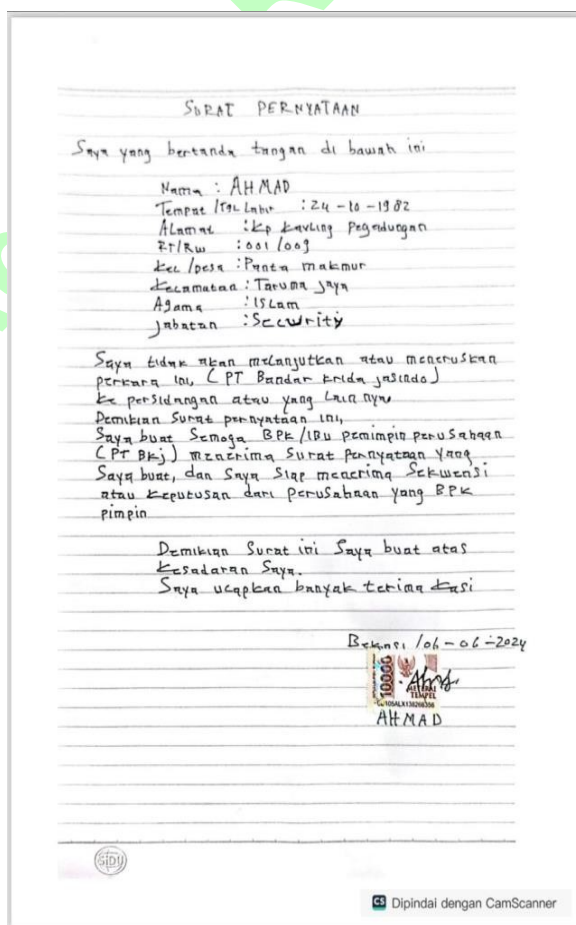 SURAT PERNYATAAN
Saya yang bertanda tangan di bawah ini
Nama : AHMAD
Tempat /TGL Lahir : 24-10-1982
ALamat : kp kavling Pegadungan
RT/RW : 001/009
kel /Desa : Panta makmur
kecamataa : Taruma Jaya
Agama : ISLam
Jabatan : Security
Saya tidak akan melanjutkan atau meneruskan
perkara ini, (PT Bandar krida jasindo)
ke persidangan atau yang Lain nya
Demikian Surat pernyataan ini,
Saya buat Semoga BPK/IBU pemimpin perusahaan
(PT BKj) menerima Surat Pernyataan Yang
Saya buat, dan Saya Siap menerima Sekwensi
atau keputusan dari perusahaan yang BPK
pimpin
Demikian Surat ini Saya buat atas
kesadaran Saya.
Saya ucapkan banyak terima kasi
Bekasi /06-06-2024
10000
METERAI
TEMPEL
AHMAD
SiDU
CS Dipindai dengan CamScanner